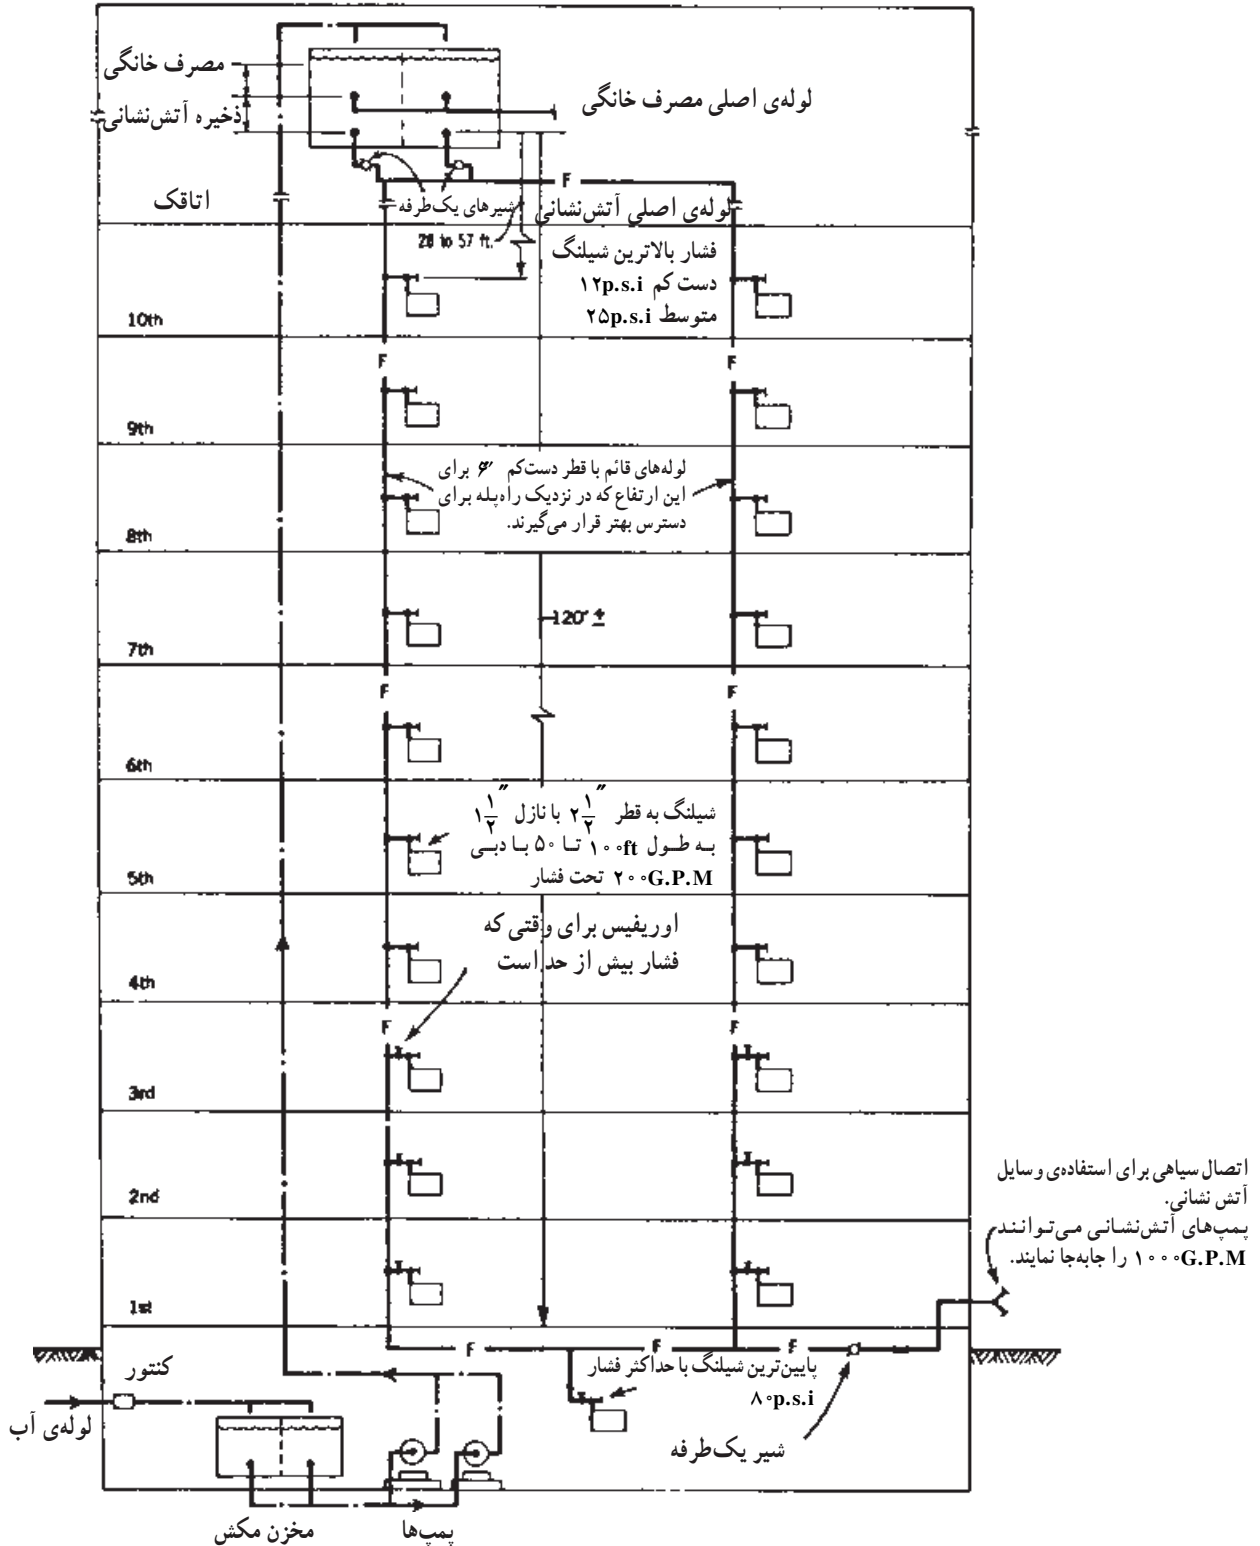 مصرف خانگی
ذخیره آتش‌نشانی
لوله‌ی اصلی مصرف خانگی
F
اتاقک
شیرهای یک‌طرفه
لوله‌ی اصلی آتش‌نشانی
28 to 57 ft.
فشار بالاترین شیلنگ
دست کم ۱۲p.s.i
متوسط ۲۵p.s.i
10th
F
F
9th
لوله‌های قائم با قطر دست‌کم ۶″ برای
این ارتفاع که در نزدیک راه‌پله برای
دسترس بهتر قرار می‌گیرند.
8th
120' ±
7th
F
F
6th
شیلنگ به قطر ۲ ۱/۲″ با نازل ۱ ۱/۲″
به طول ۱۰۰ft تا ۵۰ با دبی
۲۰۰G.P.M تحت فشار
5th
اوریفیس برای وقتی که
فشار بیش از حد است
4th
F
F
3rd
2nd
اتصال سیاهی برای استفاده‌ی وسایل
آتش نشانی.
پمپ‌های آتش‌نشانی می‌توانند
۱۰۰۰G.P.M را جابه‌جا نمایند.
1st
F
F
F
کنتور
پایین‌ترین شیلنگ با حداکثر فشار
۸۰p.s.i
لوله‌ی آب
شیر یک‌طرفه
مخزن مکش
پمپ‌ها